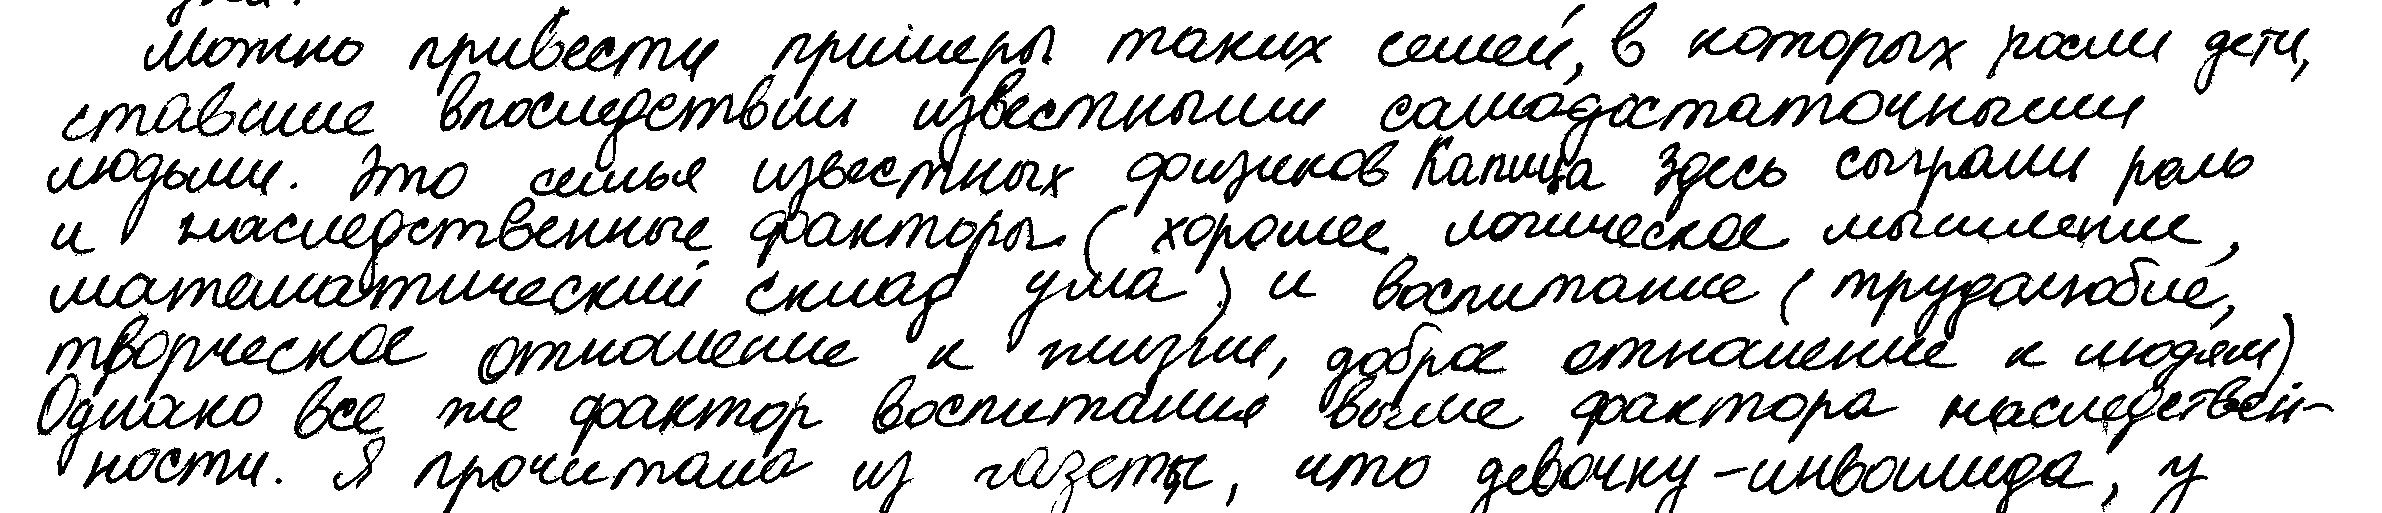 Можно привести примеры таких семей, в которых росли дети,
ставшие впоследствии известными самодостаточными
людьми. Это семья известных физиков Капица Здесь сыграли роль
и наследственные факторы (хорошее логическое мышление,
математический склад ума) и воспитание (трудолюбие,
творческое отношение к жизни, доброе отношение к людям)
Однако все же фактор воспитания выше фактора наследствен-
ности. Я прочитала из газеты, что девочку-инвалида, у